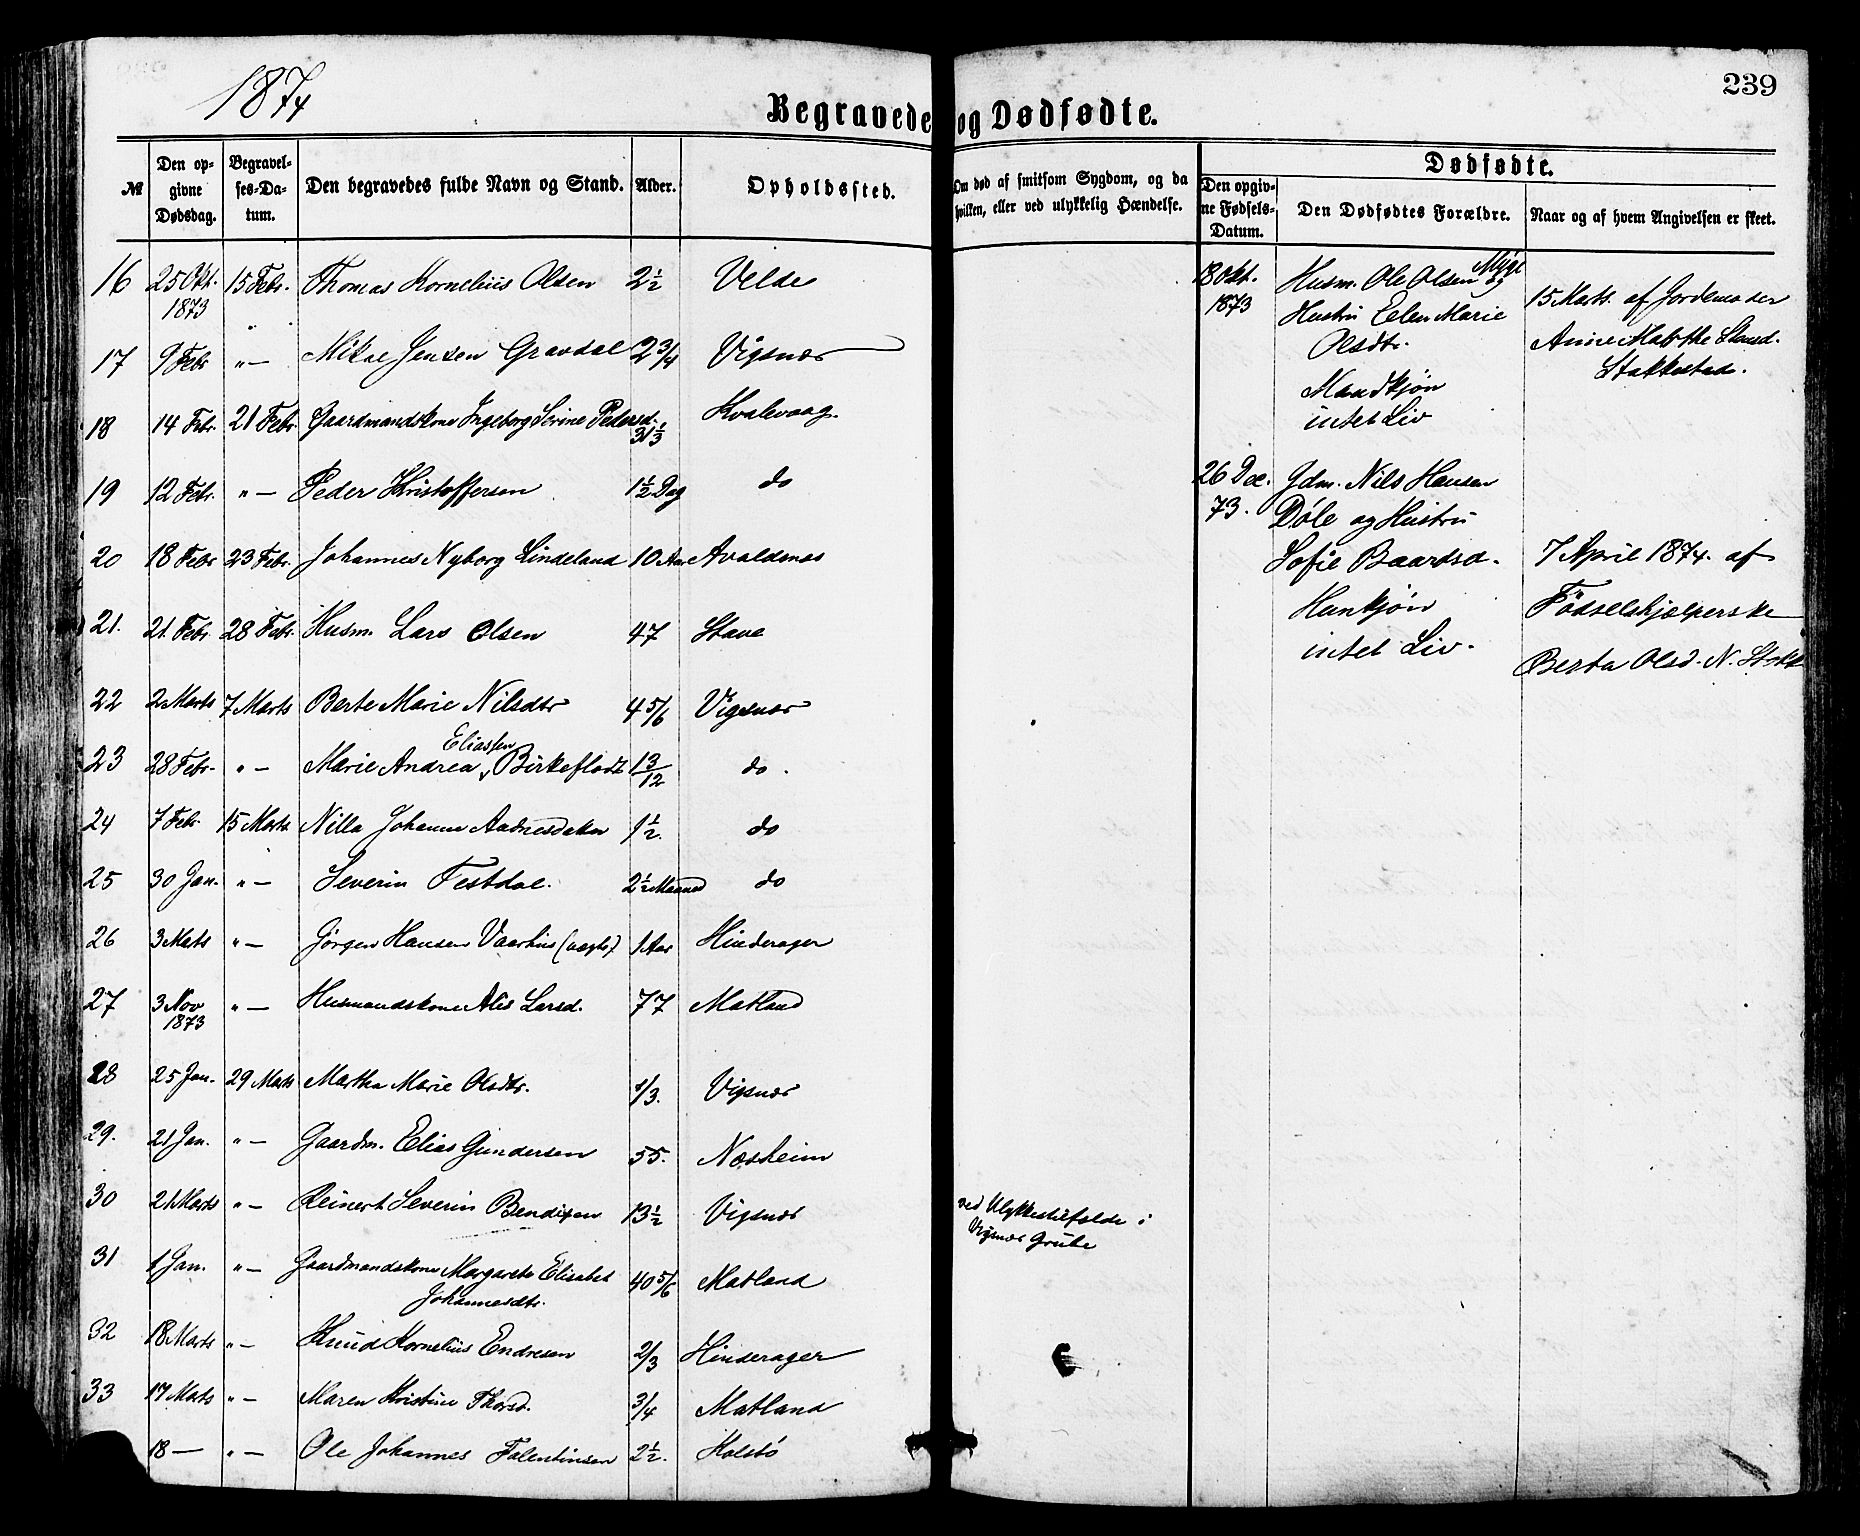 1874
239
Begravede og Dødfødte.
№ | Den opgivne Dødsdag. | Begravelses-Datum. | Den begravedes fulde Navn og Stand. | Alder. | Opholdssted. | Om død af smitsom Sygdom, og da hvilken, eller ved ulykkelig Hændelse.
Dødfødte.
Den opgivne Fødsels-Datum. | Den Dødfødtes Forældre. | Naar og af hvem Angivelsen er skeet.
16 25 Okt. 1873 15 Febr. Thomas Kornelius Olsen 2½ Velde
17 9 Febr „ — Mikal Jensen Gravdal 2 3/4 Vigsnæs
18 14 Febr. 21 Febr. Gaardmandskone Ingeborg Serine Pedersd. 31 1/3 Kvalevaag.
19 12 Febr. „ — Peder Kristoffersen 1½ Dag do
20 18 Febr 23 Febr. Johannes Nyborg Lindeland 10 Aar Avaldsnæs
21. 21. Febr. 28 Febr. Husm. Lars Olsen 47 Stave
22 2 Marts 7 Marts Berte Marie Nilsdtr 4 5/6 Vigsnæs
23 28 Febr. „ — Marie Andrea Eliassen Birkeflodt 13/12 do.
24 7 Febr 15 Marts Nilla Johanne Aadnesdater 1½. do
25 30 Jan. „ — Severin Festdal. 2½ Maaned do
26 3 Mats „ — Jørgen Hansen Vaarhus (uægte) 1 Aar Hinderager
27 3 Nov 1873 „ — Husmandskone Alis Larsd. 77 Matland
28 25 Jan. 29 Mats Martha Marie Olsdtr. 1/3. Vigsnæs
29. 21 Jan. „ — Gaardm. Elias Gundersen 55. Næsheim
30 21 Marts „ — Reinert Severin Bendixen 13½ Vigsnæs ved Ulykkestilfælde i
Vigsnæs Grube
31 1 Jan. „ — Gaardmandskone Margarete Elisabet
Johannesdtr. 40 5/6 Matland
32 18 Marts „ — Knud Kornelius Endresen 2/3 Hinderager
33 17 Mats „ — Maren Kristine Thorsd. 3/4 Matland
18 — „ — Ole Johannes Falentinsen 2½. Kolstø
18 Okt. 1873
Husm. Ole Olsen Myge og
Hustru Elen Marie
Olsdtr.
Mandkjøn
intet Liv
15 Marts. af Jordemoder
Anne Malethe
Stakkestad.
26 Dec. 73.
Gdm. Nils Hansen
Døle og Hustru
Sofie Baardsd.
Hunkjøn
intet Liv.
7 April 1874. af
Fødselshjelperske
Berta Olsd. N. Stokke